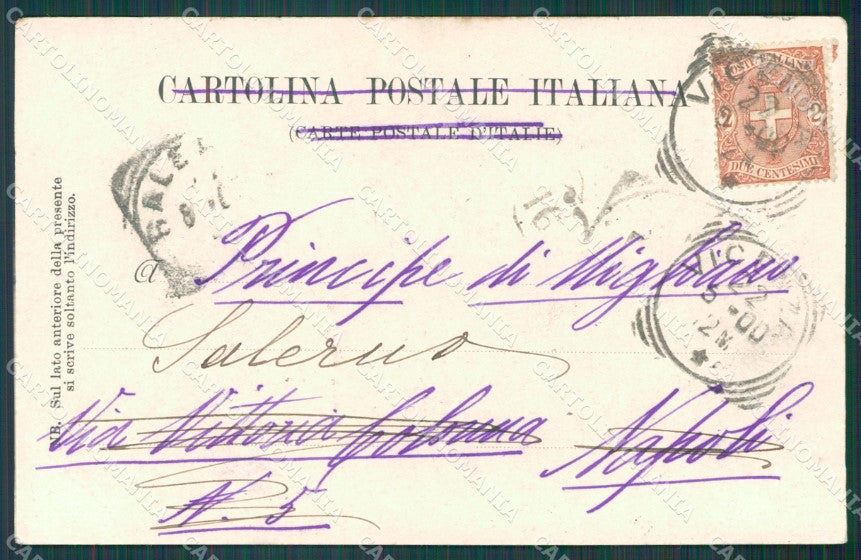 CARTOLINA POSTALE ITALIANA
(CARTE POSTALE D'ITALIE)
POSTE ITALIANE
2 2
DUE CENTESIMI
VICENZA
22
5-00
12M
NB. Sul lato anteriore della presente
si scrive soltanto l'indirizzo.
a Principe di Migliano
Salerno
Via Vittoria Colonna Napoli
N. 5
CARTOLINOMANIA